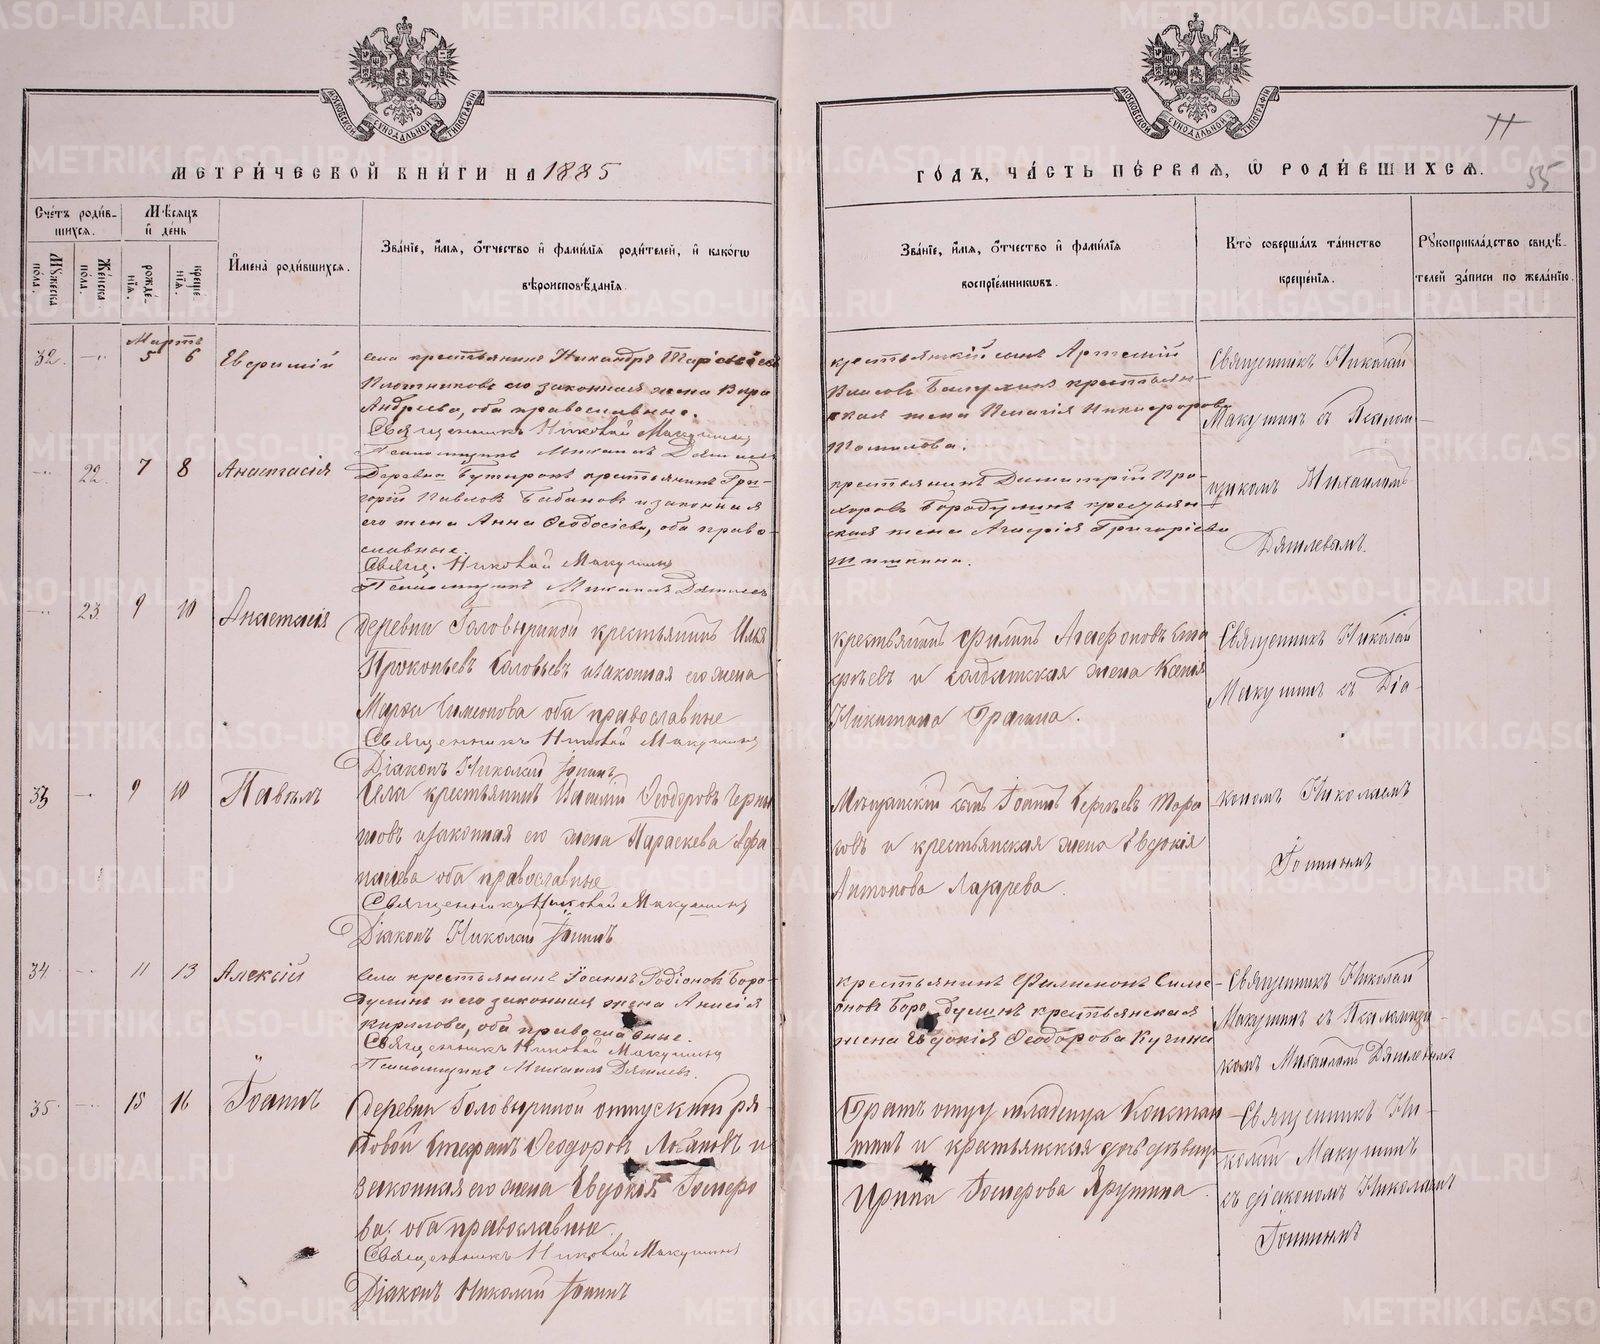 МЕТРИ́ЧЕСКОЙ КНИ́ГИ НА 1885
ГО́ДЪ, ЧА́СТЬ ПЕ́РВАЯ, Ѿ РОДИ́ВШИХСЯ.
11
55
МОСКОВСКОЙ СѴНОДАЛЬНОЙ ТИПОГРАФІИ
МОСКОВСКОЙ СѴНОДАЛЬНОЙ ТИПОГРАФІИ
Сче́тъ роди́вшихся.
Му́жеска по́ла.
Же́нска по́ла.
Мѣ́сяцъ и҆ де́нь
рожде́нїя.
креще́нїя.
И҆мена̀ роди́вшихся.
Зва́нїе, и҆́мя, ѻ҆́тчество и҆ фами́лїѧ роди́телей, и҆ какѡ́гѡ
вѣроисповѣ́данїя.
Зва́нїе, и҆́мя, ѻ҆́тчество и҆ фами́лїѧ
воспрїе́мникѡвъ.
Кто̀ соверша́лъ та́инство
креще́нїя.
Рꙋкоприкла́дство свидѣ́-
телей за́писи по жела́нїю.
Мартъ
32. 5 6 Евѳимій
села крестьянинъ Никандръ
Плотниковъ его законная жена Вѣра
Андреева, оба православные.
Священникъ Николай Макушинъ
Псаломщикъ Михаилъ Дягилевъ
крестьянскій сынъ Артемій
Власовъ крестьян-
ская жена Пелагія Никифорова
Томилова.
Священникъ Николай
Макушинъ съ Псалом-
щикомъ Михаиломъ
Дягилевымъ.
22. 7 8 Анастасія
Деревни крестьянинъ Гри-
горій Павловъ Бабановъ и законная
его жена Анна Ѳеодосіева, оба право-
славные.
Свящ. Николай Макушинъ
Псаломщикъ Михаилъ Дягилевъ
крестьянинъ Димитрій Про-
хоровъ Бородулинъ крестьян-
ская жена Агафія Григоріева
Шишкина.
23. 9 10 Анастасія
Деревни Головыриной крестьянинъ Илья
Прокопьевъ Соловьевъ и законная его жена
Марѳа Симеонова оба православные
Священникъ Николай Макушинъ
Діаконъ Николай
крестьянинъ Филипъ Агафоновъ
и солдатская жена Ксенія
Никитина Брагина.
Священникъ Николай
Макушинъ съ Діа-
кономъ Николаемъ
33 9 10 Павелъ
Села крестьянинъ Василій Ѳеодоровъ
и законная его жена Параскева Афа-
насіева оба православные
Священникъ Николай Макушинъ
Діаконъ Николай
Мѣщанскій сынъ Іоаннъ Сергѣевъ
и крестьянская жена Евдокія
Антонова Лазарева.
34 11 13 Алексій
Села крестьянинъ Іоаннъ Родіоновъ Боро-
дулинъ и его законная жена Анисія
Кирилова, оба православные.
Священникъ Николай Макушинъ
Псаломщикъ Михаилъ Дягилевъ.
крестьянинъ Филимонъ Симе-
оновъ Бородулинъ крестьянская
жена Евдокія Ѳеодорова Кучина
Священникъ Николай
Макушинъ съ Псаломщи-
комъ Михаиломъ Дягилевымъ
35 15 16 Іоаннъ
Деревни Головыриной отпускный ря-
довой Стефанъ Ѳеодоровъ Лобановъ и
законная его жена Евдокія
оба православные.
Священникъ Николай Макушинъ
Діаконъ Николай
Братъ отцу младенца Констан-
тинъ и крестьянская дочь дѣвица
Ирина
Священникъ Ни-
колай Макушинъ
съ діакономъ Николаемъ